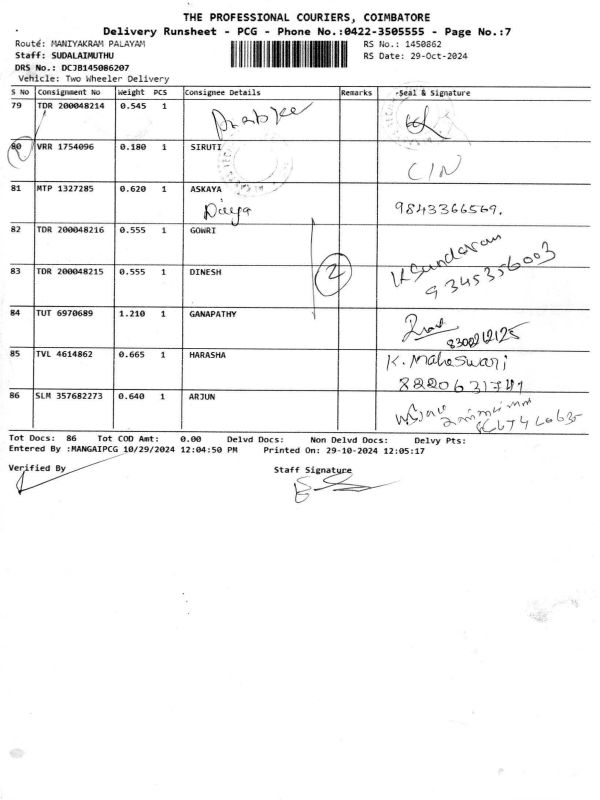 THE PROFESSIONAL COURIERS, COIMBATORE
Delivery Runsheet - PCG - Phone No.:0422-3505555 - Page No.:7
Route: MANIYAKRAM PALAYAM RS No.: 1450862
Staff: SUDALAIMUTHU RS Date: 29-Oct-2024
DRS No.: DCJB145086207
Vehicle: Two Wheeler Delivery
S No Consignment No Weight PCS Consignee Details Remarks Seal & Signature
79 TDR 200048214 0.545 1
80 VRR 1754096 0.180 1 SIRUTI
CIN
81 MTP 1327285 0.620 1 ASKAYA
Divya 9843366569.
82 TDR 200048216 0.555 1 GOWRI
K Sundaram
2
83 TDR 200048215 0.555 1 DINESH
9345356003
84 TUT 6970689 1.210 1 GANAPATHY
85 TVL 4614862 0.665 1 HARASHA K. Maheswari
86 SLM 357682273 0.640 1 ARJUN
Tot Docs: 86 Tot COD Amt: 0.00 Delvd Docs: Non Delvd Docs: Delvy Pts:
Entered By :MANGAIPCG 10/29/2024 12:04:50 PM Printed On: 29-10-2024 12:05:17
Verified By Staff Signature